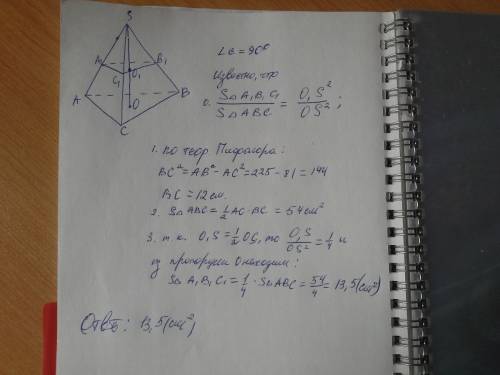 S
A₁ B₁
C₁ O₁
A O B
C
∠C = 90°
Известно, что
0. S△A₁B₁C₁ / S△ABC = O₁S² / OS² ;
1. по теор Пифагора:
BC² = AB² - AC² = 225 - 81 = 144
BC = 12 см.
2. S△ABC = 1/2 AC · BC = 54 см²
3. т.к. O₁S = 1/2 OS, то O₁S / OS² = 1/4 и
из пропорции 0 находим:
S△A₁B₁C₁ = 1/4 · S△ABC = 54/4 = 13,5 (см²)
Ответ: 13,5 (см²)